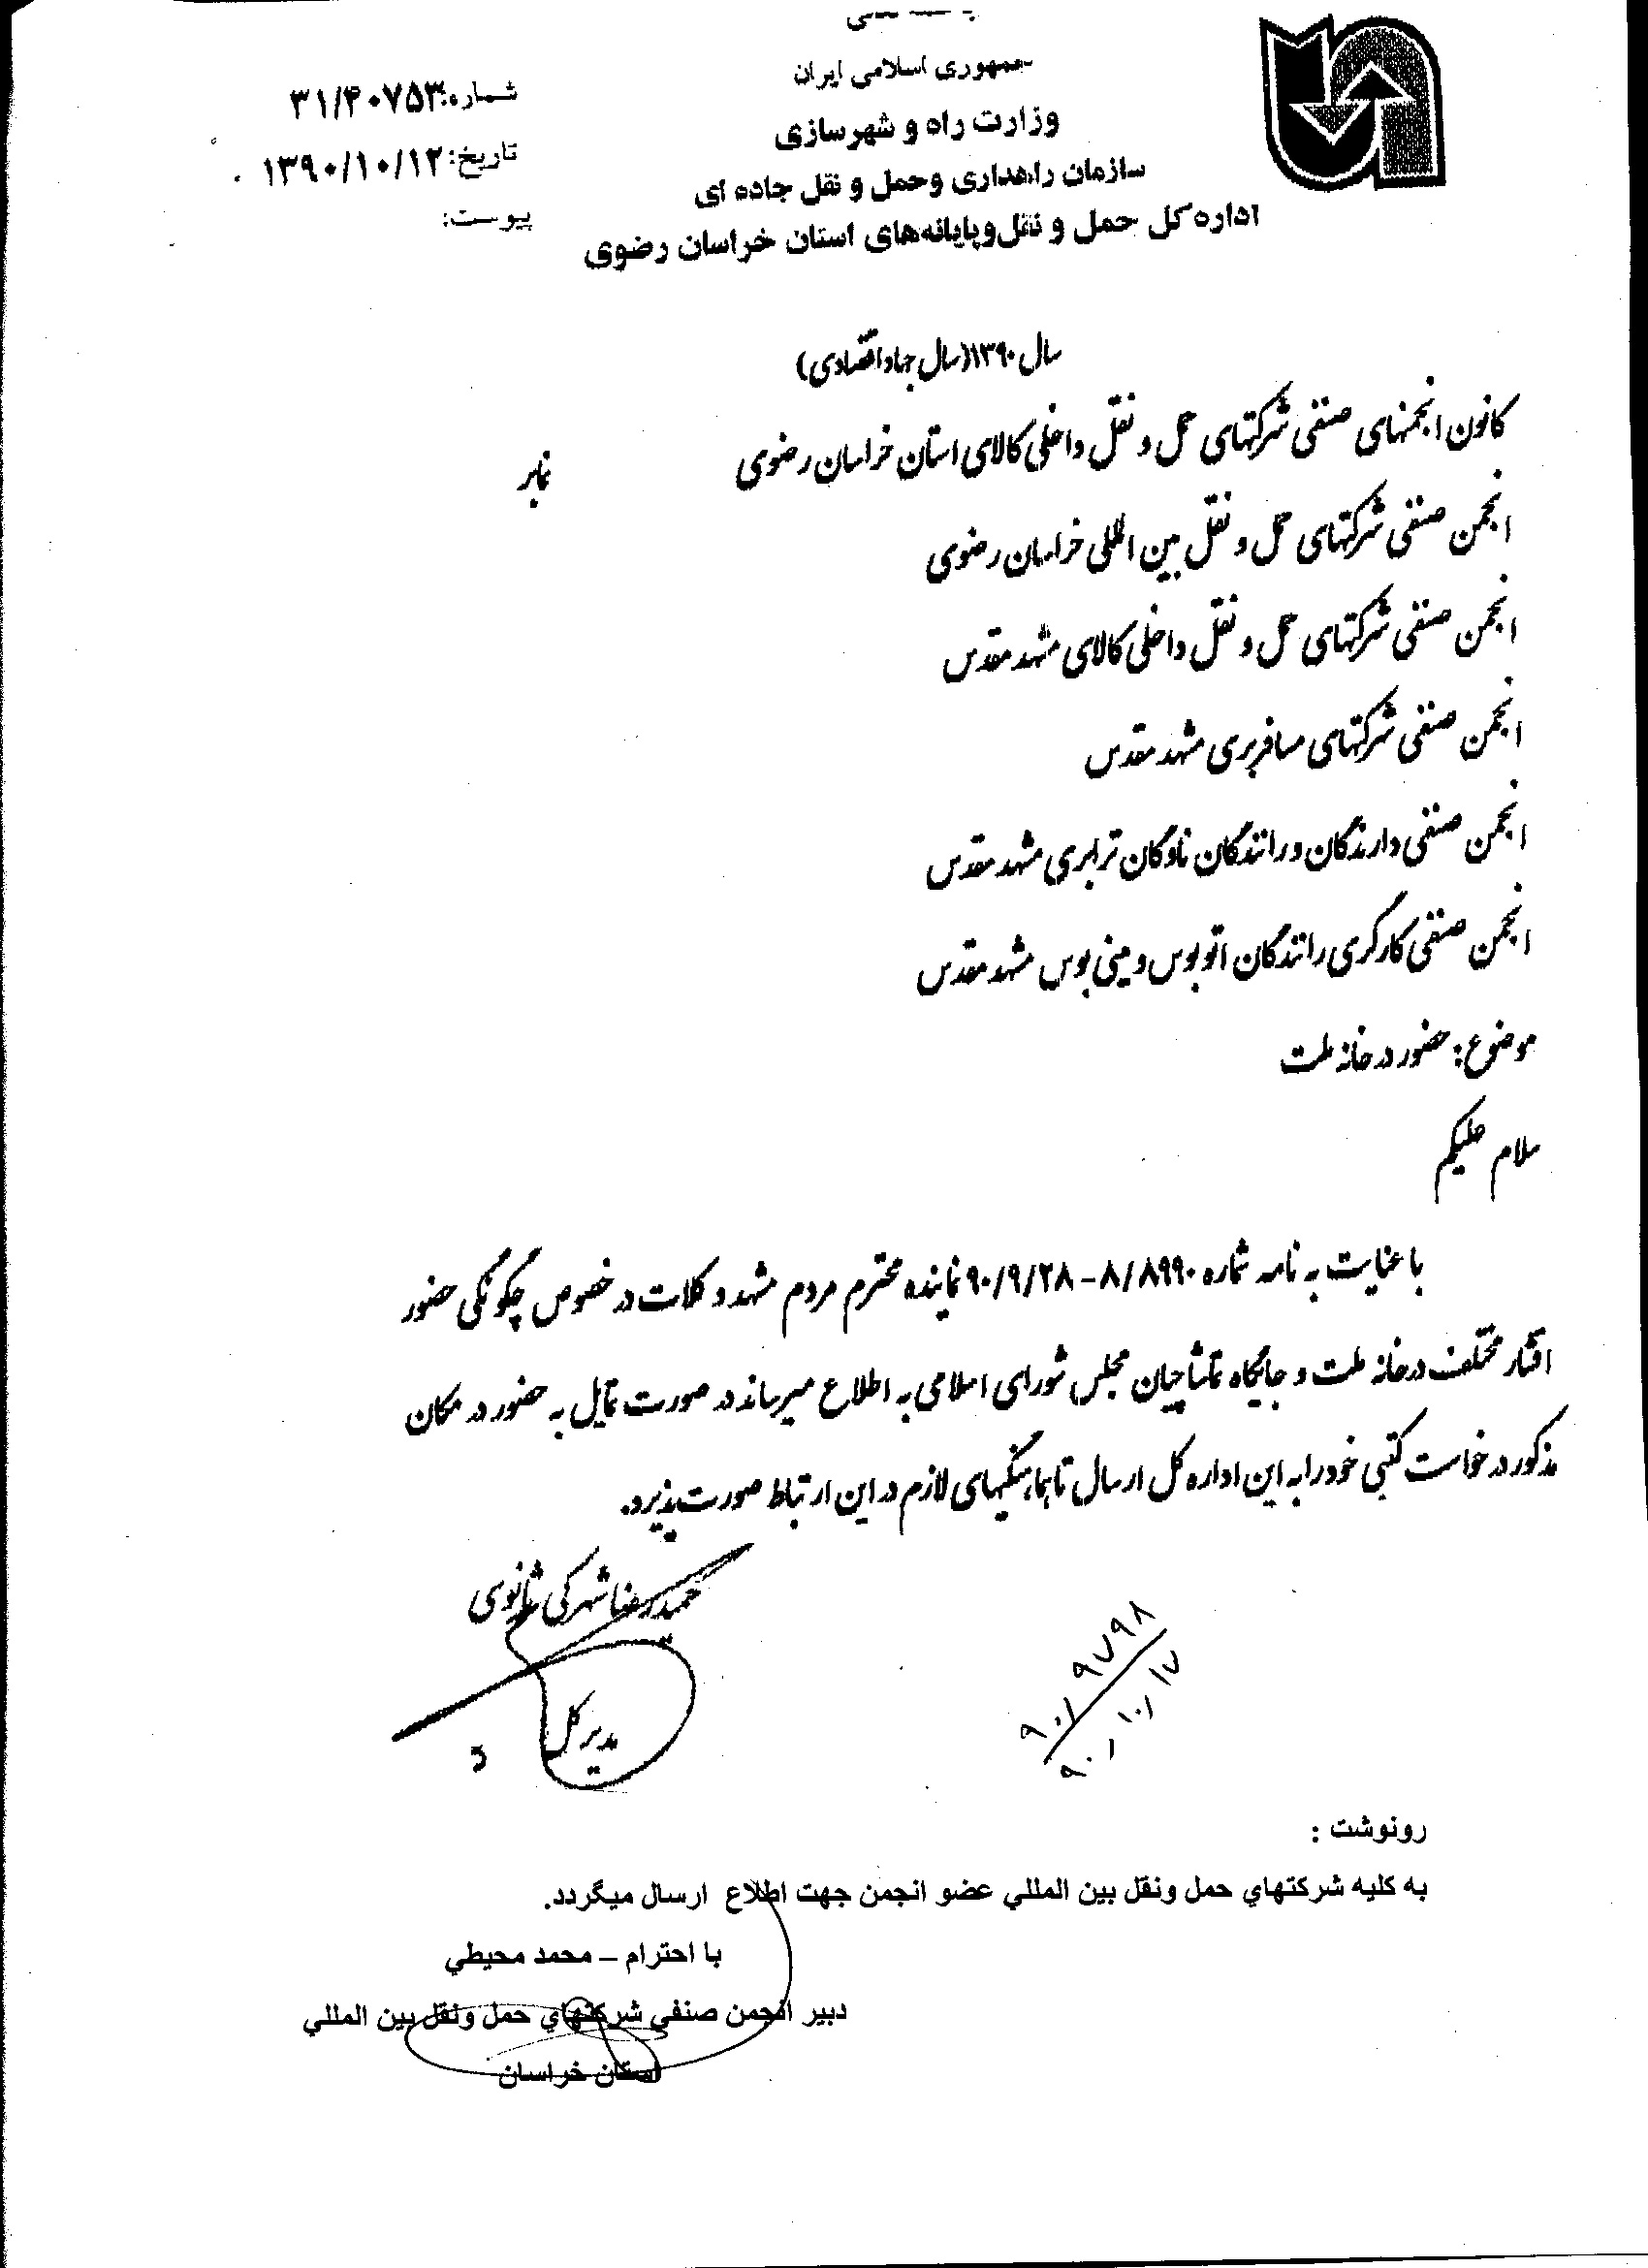 جمهوری اسلامی ایران
وزارت راه و شهرسازی
سازمان راهداری وحمل و نقل جاده ای
اداره کل حمل و نقل و پایانه‌های استان خراسان رضوی
شماره: ۳۱/۴۰۷۵۳
تاریخ: ۱۳۹۰/۱۰/۱۲
پیوست:
سال ۱۳۹۰(سال جهاد اقتصادی)
کانون انجمنهای صنفی شرکتهای حمل و نقل داخلی کالای استان خراسان رضوی نمابر
انجمن صنفی شرکتهای حمل و نقل بین المللی خراسان رضوی
انجمن صنفی شرکتهای حمل و نقل داخلی کالای مشهد مقدس
انجمن صنفی شرکتهای مسافربری مشهد مقدس
انجمن صنفی دارندگان و رانندگان ناوگان ترابری مشهد مقدس
انجمن صنفی کارگری رانندگان اتوبوس و مینی بوس مشهد مقدس
موضوع: حضور در خانه ملت
سلام علیکم
با عنایت به نامه شماره ۸/۸۹۹۰-۹۰/۹/۲۸ نماینده محترم مردم مشهد و کلات در خصوص چگونگی حضور
اقشار مختلف در خانه ملت و جایگاه تماشاچیان مجلس شورای اسلامی به اطلاع میرساند در صورت تمایل به حضور در مکان
مذکور درخواست کتبی خود را به این اداره کل ارسال تا هماهنگیهای لازم در این ارتباط صورت پذیرد.
حمیدرضا شهرکی ثانوی
مدیر کل
۹۰/۹۷۹۸
۹۰/۱۰/۱۷
رونوشت :
به کلیه شرکتهاي حمل ونقل بین المللي عضو انجمن جهت اطلاع ارسال میگردد.
با احترام – محمد محیطي
دبیر انجمن صنفي شرکتهاي حمل ونقل بین المللي
استان خراسان